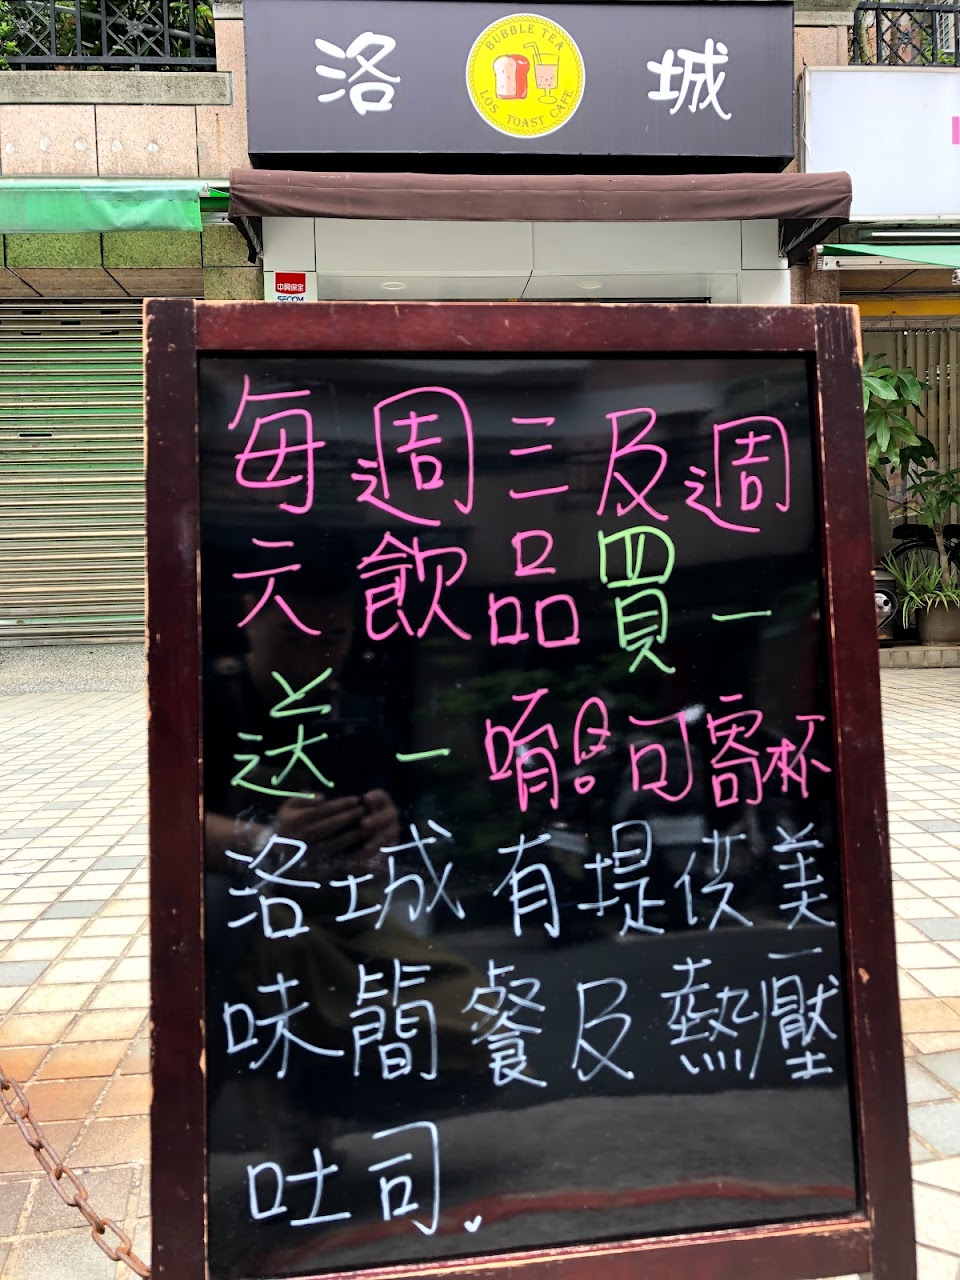 洛 城
BUBBLE TEA
LOS TOAST CAFE
中興保全
SECOM
每週三及週
六飲品買一
送一唷!!可寄杯
洛城有提供美
味簡餐及熱壓
吐司